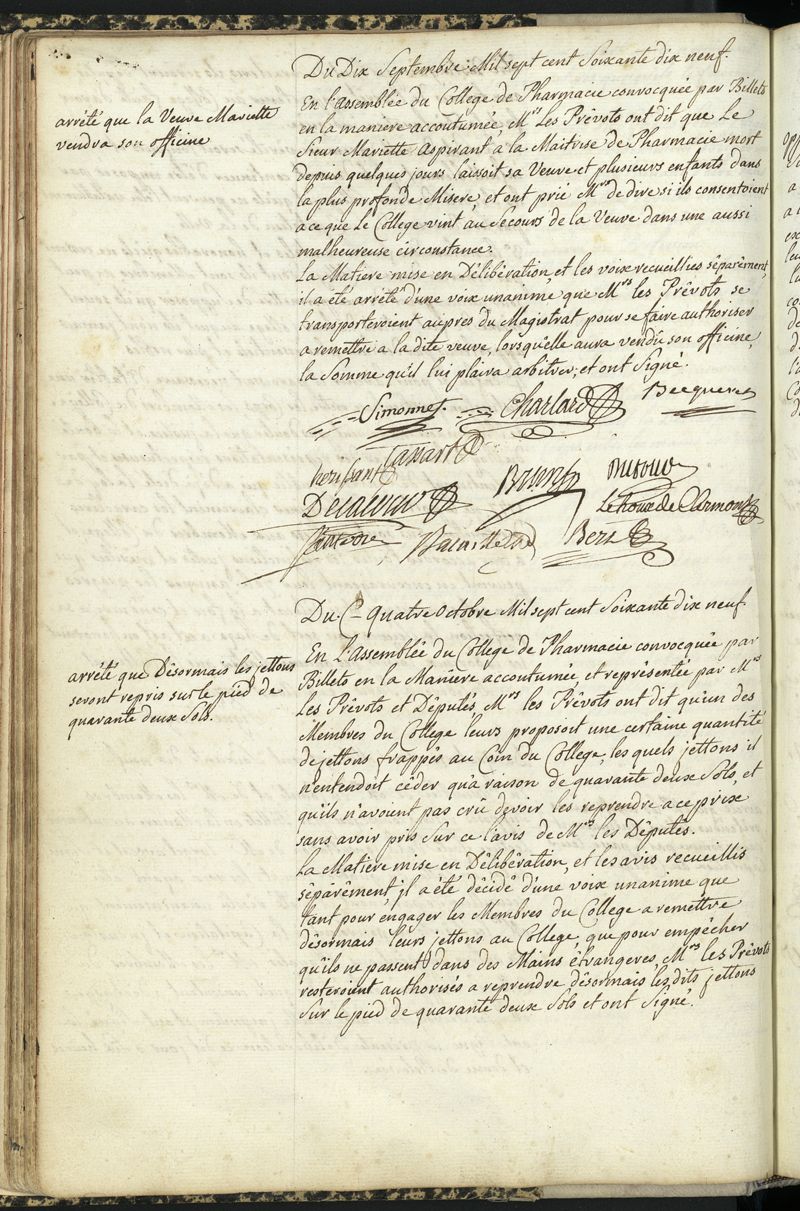 Du Dix Septembre Mil sept cent Soixante dix neuf.
arrêté que la Veuve Mariette
vendra son officine
En l'assemblée du College de Pharmacie convocquée par Billets
en la maniere accoutumée, Mrs Les Prévots ont dit que Le
Sieur Mariette aspirant a la Maitrise de Pharmacie mort
depuis quelques jours laissoit sa Veuve et plusieurs enfants dans
la plus profonde Misere, et ont prié Mrs de dire si ils consentoient
a ce que Le College vint au Secours de la Veuve dans une aussi
malheureuse circonstance.
La Matiere mise en Délibération, et les voix recueillies séparément,
il a été arrêté d'une voix unanime que Mrs les Prévots se
transporteroient aupres du Magistrat pour se faire authoriser
a remettre a la dite veuve, lorsqu'elle aura vendu son officine
la Somme qu'il lui plaira arbitrer, et ont Signé.
Simonnet. Charlard Becqueret
herissant Tassart
Brun
Delacour Le houx de Clermont
Bataille
Du Quatre octobre Mil sept cent Soixante dix neuf.
arrêté que Désormais les jettons
seront repris sur le pied de
quarante deux Sols.
En L'assemblée du College de Pharmacie convocquée par
Billets en la Maniere accoutumée, et représentée par Mrs
Les Prévots et Députés, Mrs les Prévots ont dit qu'un des
Membres du College leurs proposoit une certaine quantité
de jettons frappés au Coin du College, les quels jettons il
n'entendoit céder qu'a raison de quarante deux Sols, et
qu'ils n'avoient pas crû devoir les reprendre a ce prix
sans avoir pris Sur ce l'avis de Mrs les Députés.
La Matiere mise en Délibération, et les avis recueillis
séparément, jl a été décidé d'une voix unanime que
tant pour engager les Membres du College a remettre
désormais leurs jettons au College, que pour empêcher
qu'ils ne passent dans des Mains étrangeres, Mrs les Prévots
resteroient authorisés a reprendre désormais les dits jettons
Sur le pied de quarante deux Sols et ont Signé.